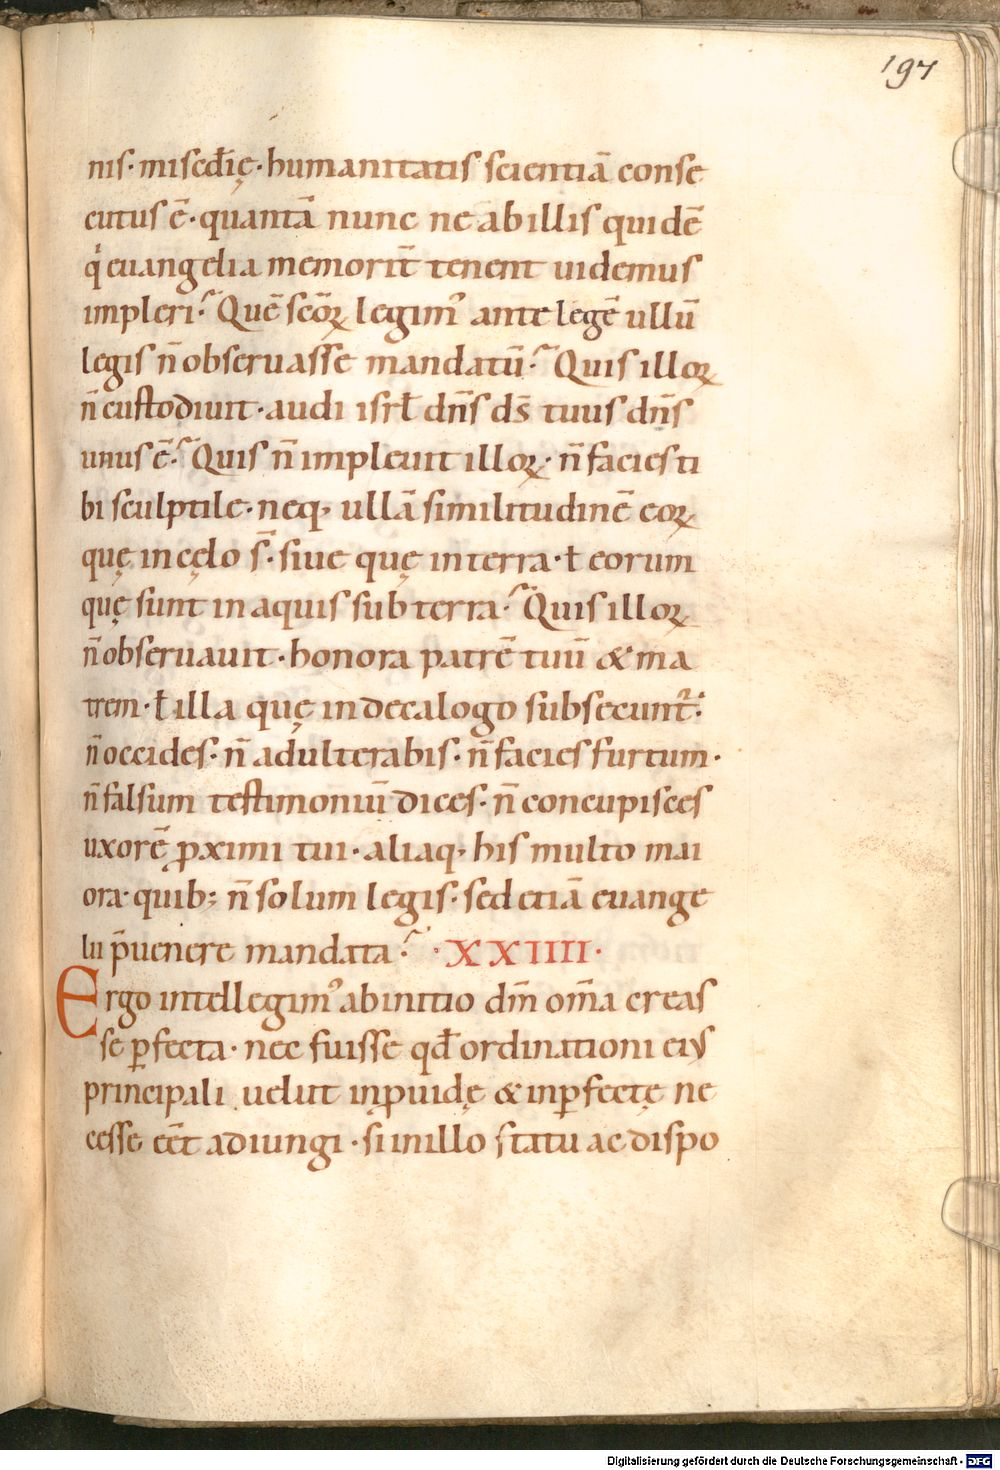 197
nis· misc̄dię· humanitatis scientiā conse
cutus ē· quantā nunc ne ab illis quidē
q̍ euangelia memorit̄ tenent uidemus
impleri· Quē sc̄oꝝ legim᾽ ante legē ullū
legis n̄ obseruasse mandatū· Quis illoꝝ
n̄ custodiuit· audi isrl̄ dn̄s ds̄ tuus dn̄s
unus ē· Quis n̄ impleuit illoꝝ· n̄ facies ti
bi sculptile· neq· ullā similitudinē eoꝝ
quę in cęlo s̄· siue quę in terra· ł eorum
quę sunt in aquis sub terra· Quis illoꝝ
n̄ obseruauit· honora patrē tuū & ma
trem· ł illa quę in decalogo subsecunt᷑·
n̄ occides· n̄ adulterabis· n̄ facies furtum·
n̄ falsum testimoniū dices· n̄ concupisces
uxorē ꝓximi tui· aliaq· his multo mai
ora· quib; n̄ solum legis· sed etiā euange
lii p̄uenere mandata· ·XXIIII·
Ergo intellegim᾽ ab initio dm̄ om̄a creas
se ꝑfecta· nec fuisse qđ ordinationi eiꝰ
principali uelut inꝓuidę & inꝑfectę ne
cesse eēt adiungi· si in illo statu ac dispo
Digitalisierung gefördert durch die Deutsche Forschungsgemeinschaft - DFG